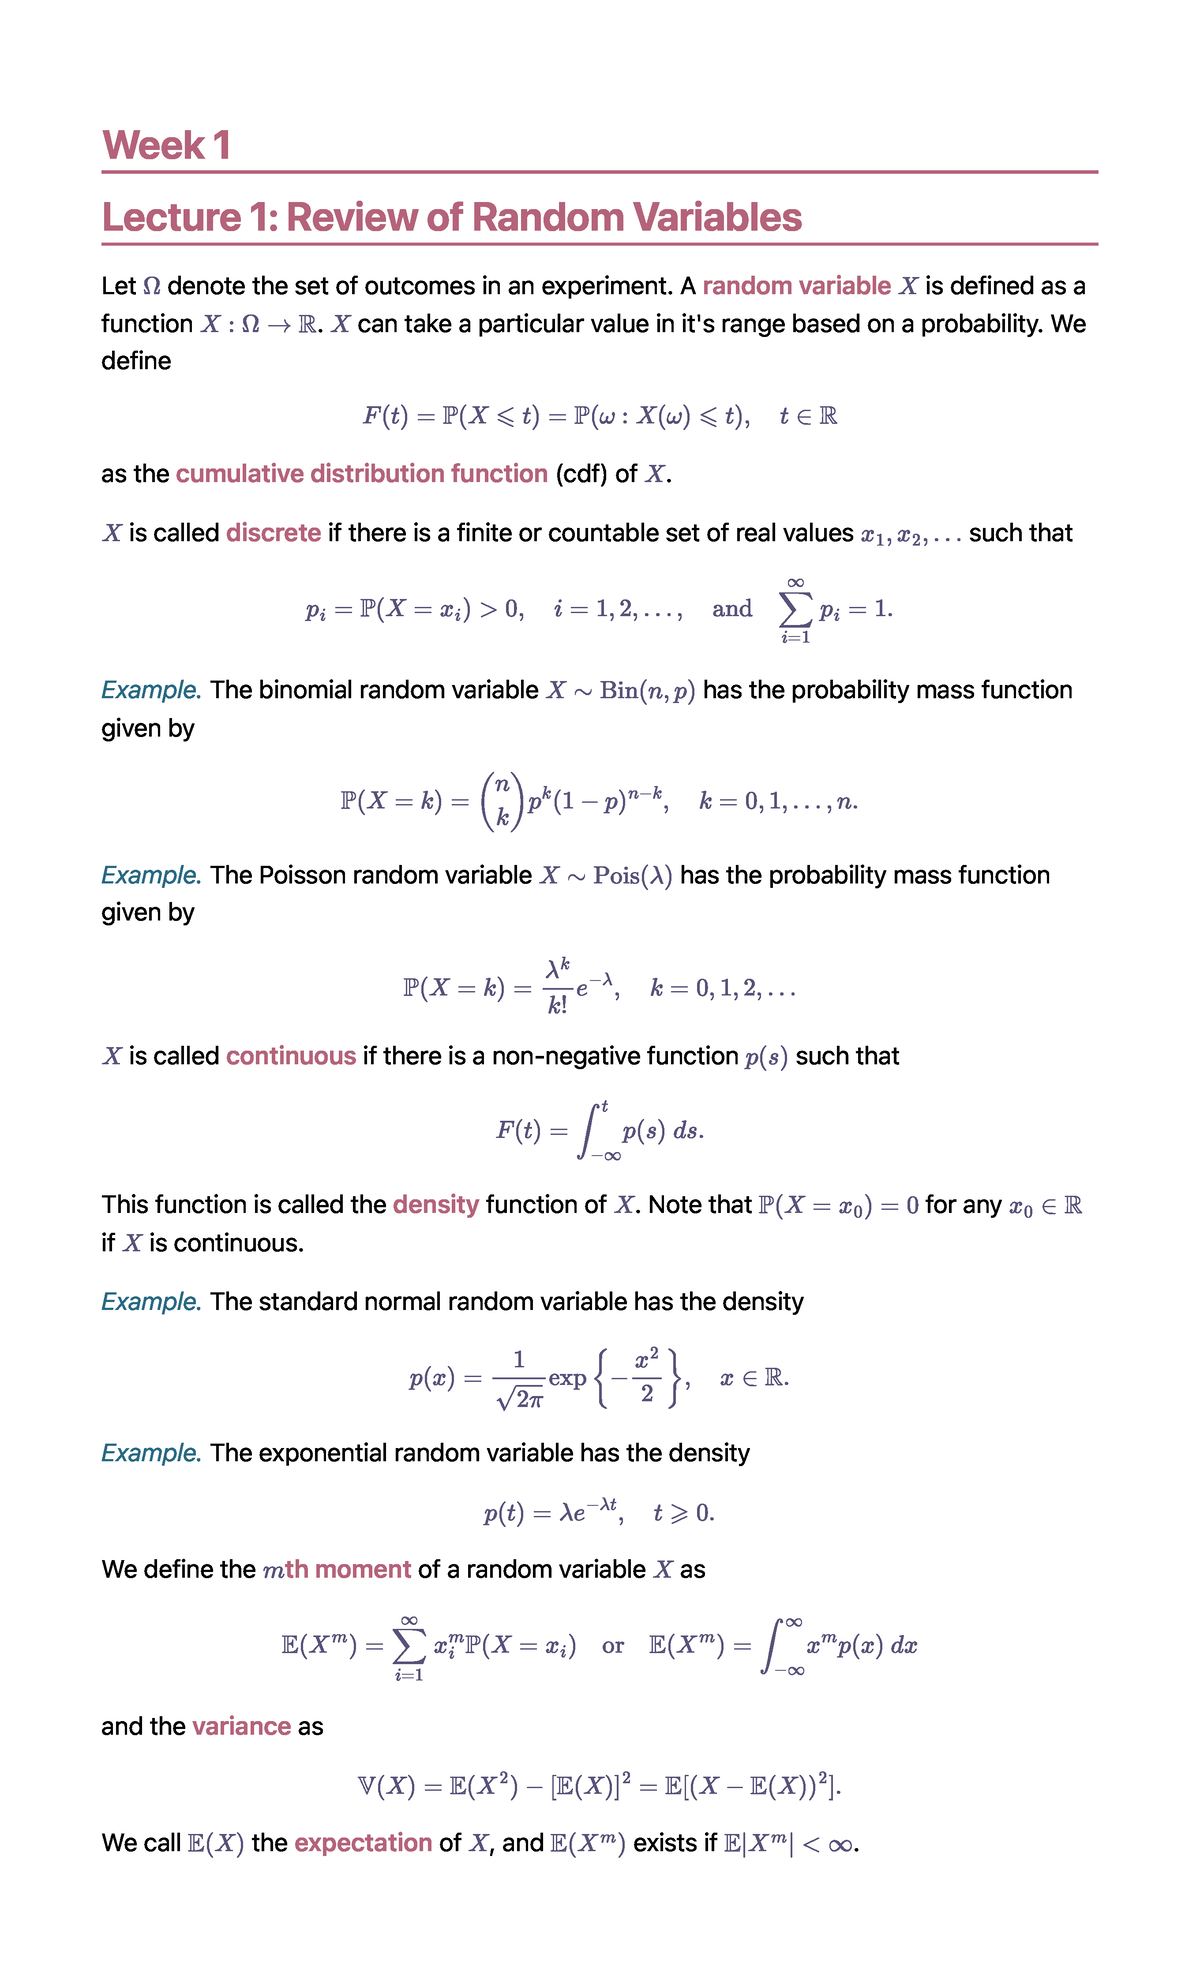 Week 1
Lecture 1: Review of Random Variables
Let Ω denote the set of outcomes in an experiment. A random variable X is defined as a
function X : Ω → ℝ. X can take a particular value in it's range based on a probability. We
define
F(t) = ℙ(X ⩽ t) = ℙ(ω : X(ω) ⩽ t), t ∈ ℝ
as the cumulative distribution function (cdf) of X.
X is called discrete if there is a finite or countable set of real values x₁, x₂, … such that
pᵢ = ℙ(X = xᵢ) > 0, i = 1, 2, …, and ∑_{i=1}^{∞} pᵢ = 1.
Example. The binomial random variable X ∼ Bin(n, p) has the probability mass function
given by
ℙ(X = k) = \binom{n}{k} p^k (1 − p)^{n−k}, k = 0, 1, …, n.
Example. The Poisson random variable X ∼ Pois(λ) has the probability mass function
given by
ℙ(X = k) = \frac{λ^k}{k!} e^{−λ}, k = 0, 1, 2, …
X is called continuous if there is a non-negative function p(s) such that
F(t) = ∫_{−∞}^{t} p(s) ds.
This function is called the density function of X. Note that ℙ(X = x₀) = 0 for any x₀ ∈ ℝ
if X is continuous.
Example. The standard normal random variable has the density
p(x) = \frac{1}{\sqrt{2π}} exp{−\frac{x^2}{2}}, x ∈ ℝ.
Example. The exponential random variable has the density
p(t) = λe^{−λt}, t ⩾ 0.
We define the mth moment of a random variable X as
𝔼(X^m) = ∑_{i=1}^{∞} x_i^m ℙ(X = xᵢ) or 𝔼(X^m) = ∫_{−∞}^{∞} x^m p(x) dx
and the variance as
𝕍(X) = 𝔼(X²) − [𝔼(X)]² = 𝔼[(X − 𝔼(X))²].
We call 𝔼(X) the expectation of X, and 𝔼(X^m) exists if 𝔼|X^m| < ∞.